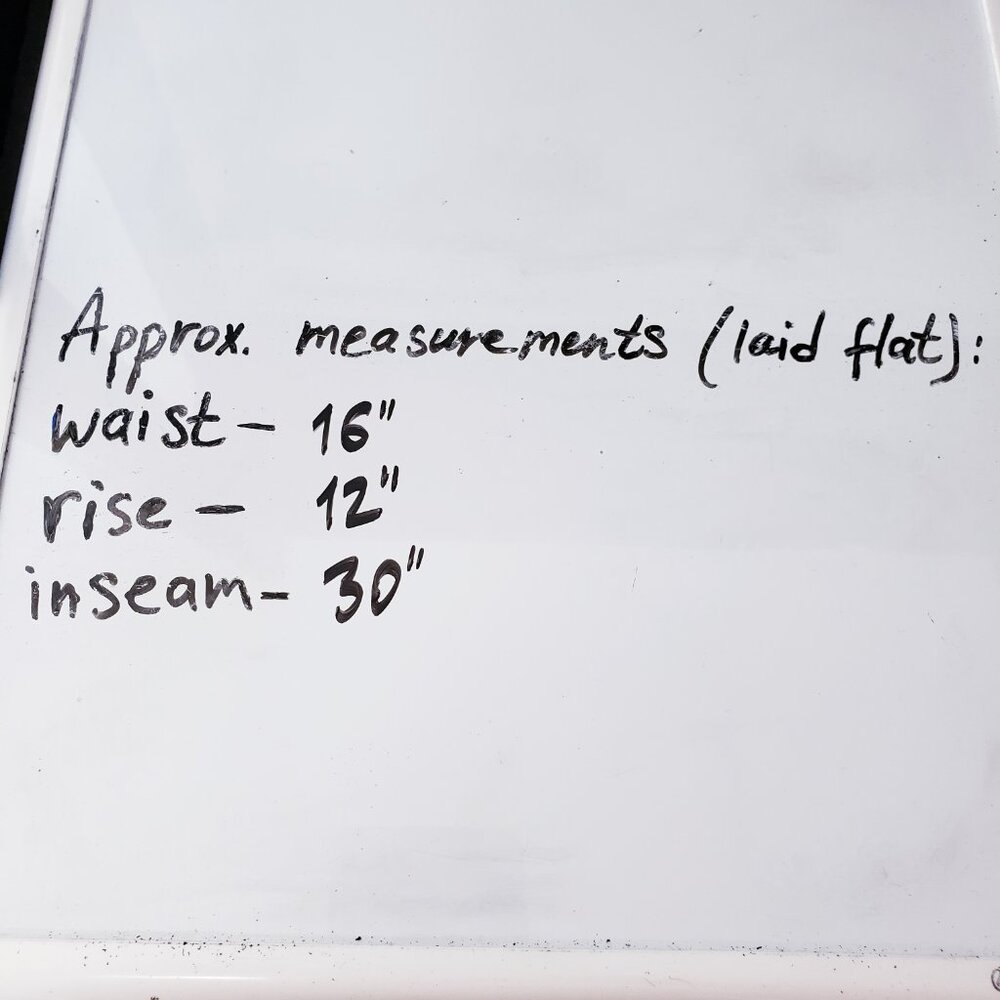 Approx. measurements (laid flat):
waist - 16"
rise - 12"
inseam - 30"